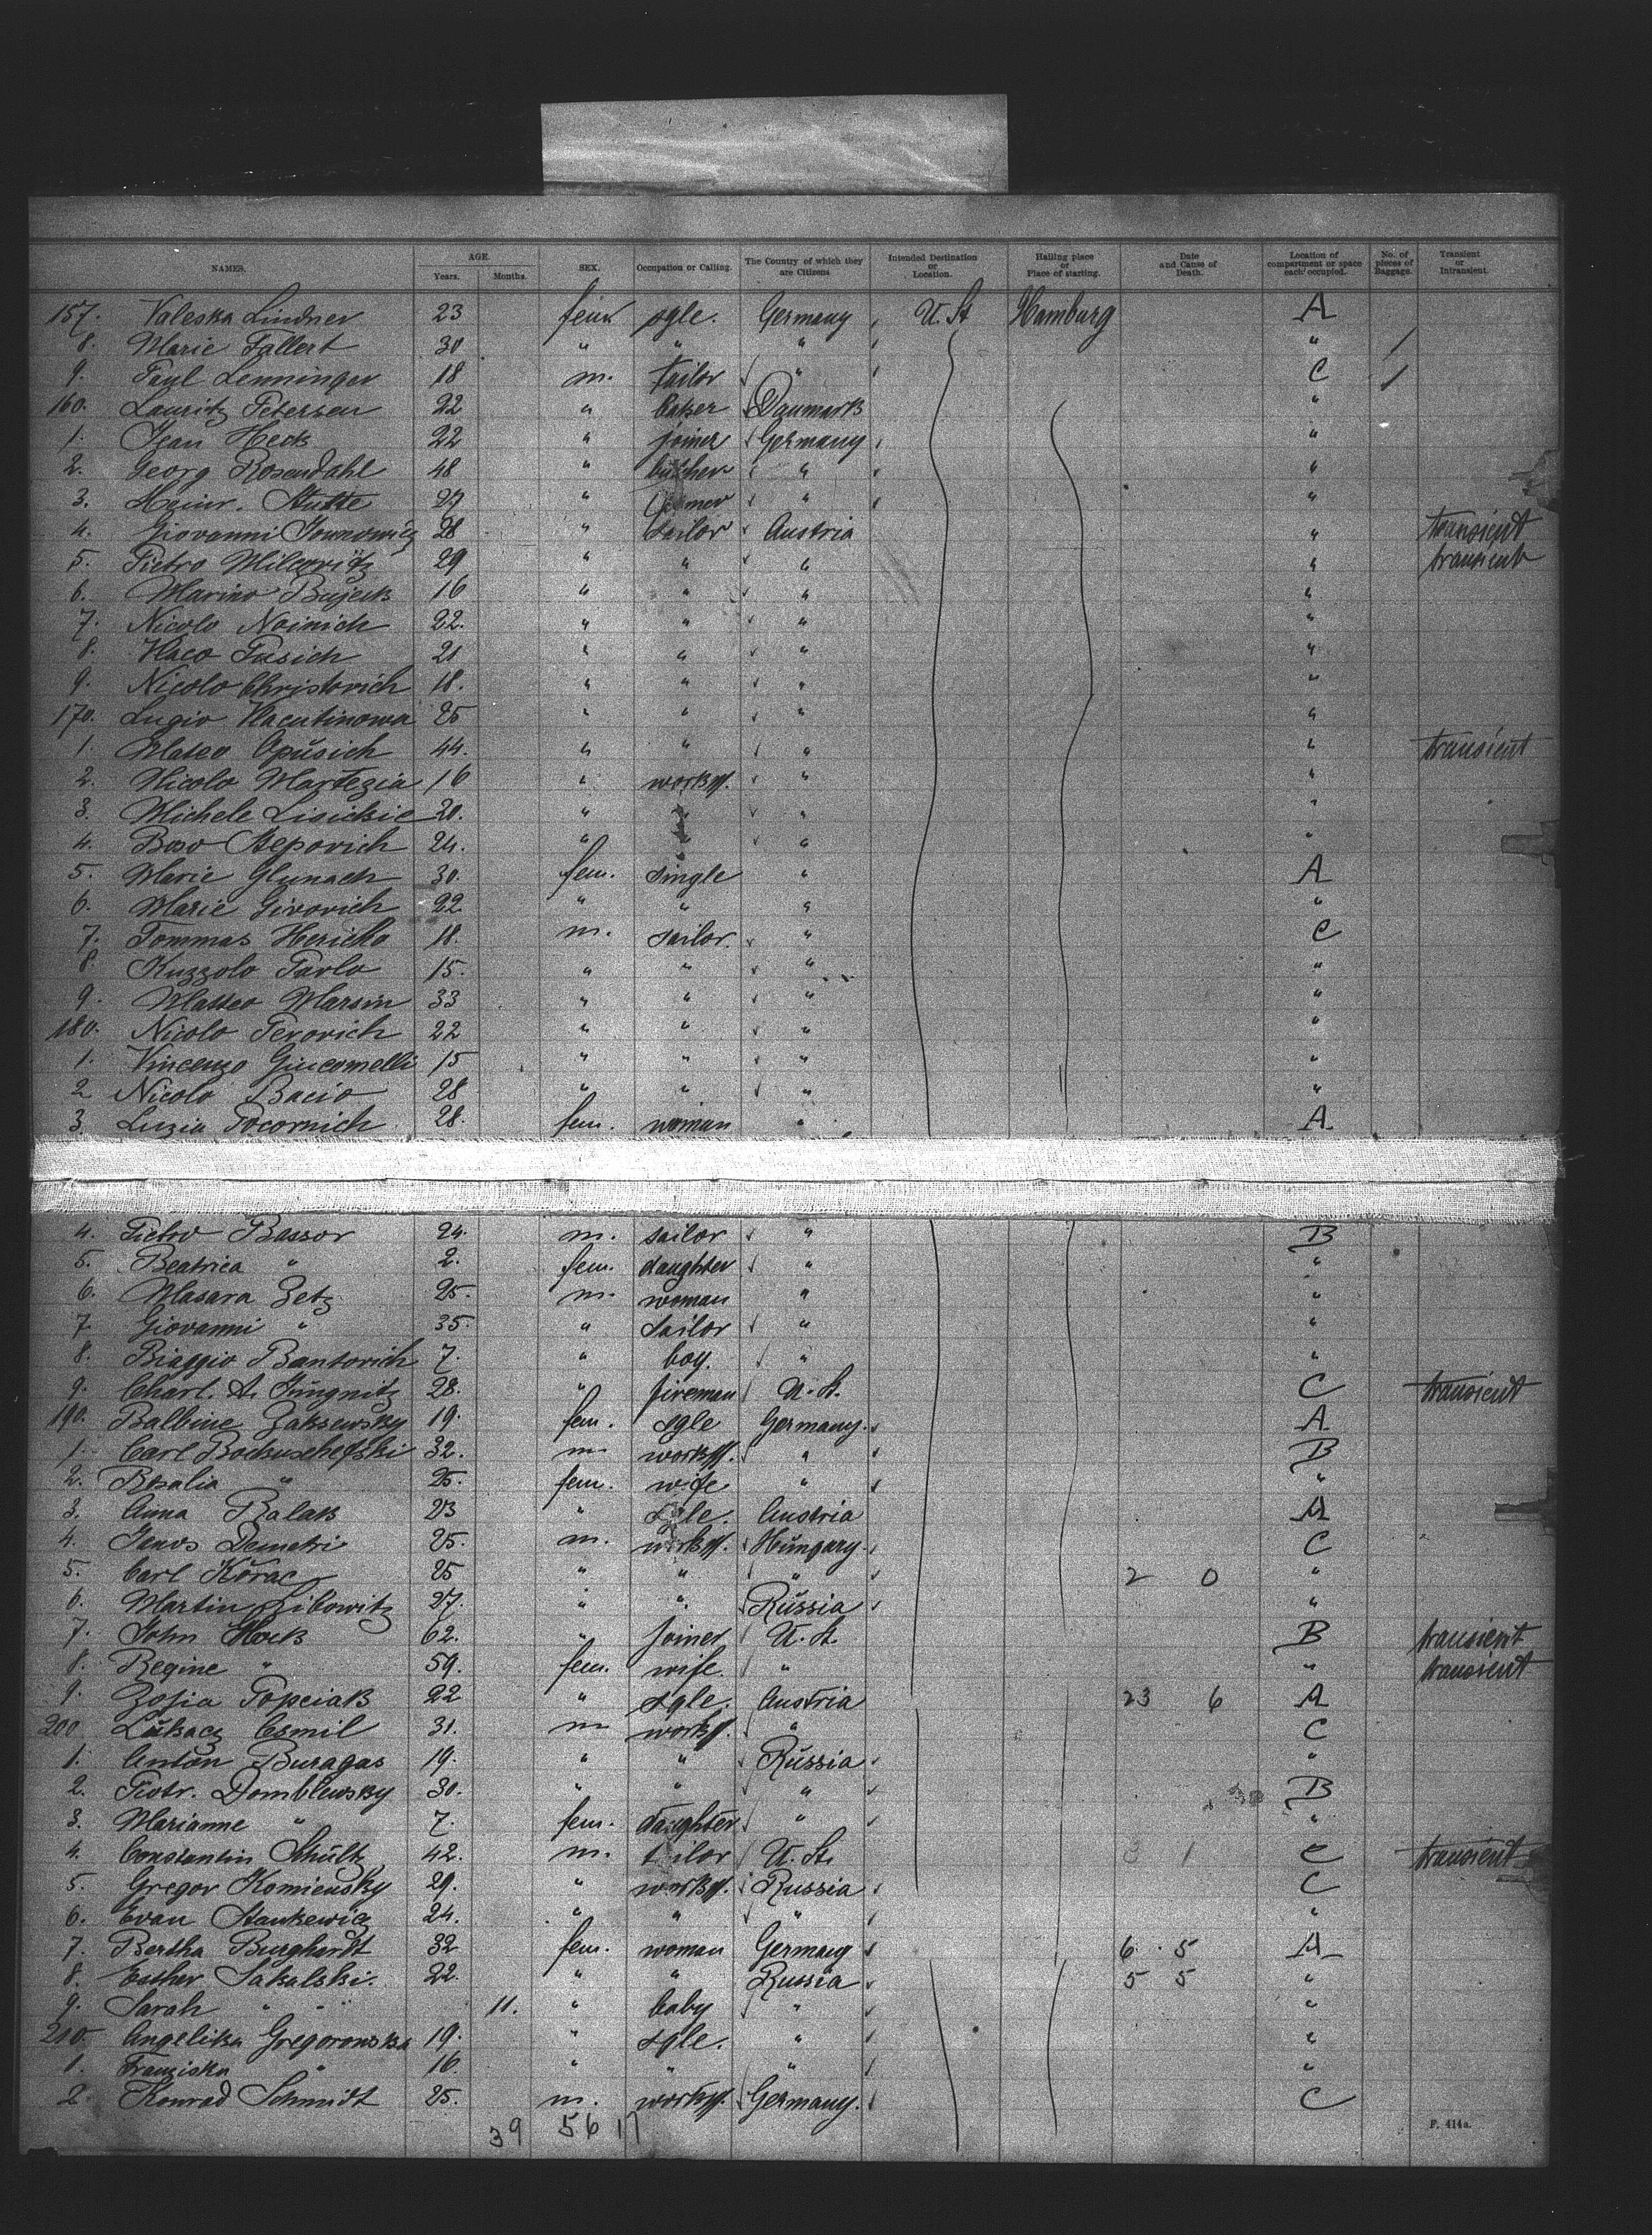 NAMES. AGE. Years. Months. SEX. Occupation or Calling. The Country of which they are Citizens Intended Destination or Location. Hailing place or Place of starting. Date and Cause of Death. Location of compartment or space each occupied. No. of pieces of Baggage. Transient or Intransient.
157. Valeska Lindner 23 fem. sgle. Germany U. St Hamburg A
8. Marie Fallert 30 " " " "
9. Paul Lenninger 18 m. tailor " C
160. Lauritz Petersen 22 " baker Danmark "
1. Jean Heck 22 " joiner Germany "
2. Georg Rosendahl 48 " butcher " "
3. Heinr. Stutte 27 " " "
4. Giovanni 28 " sailor Austria " transient
5. Pietro Milcovitz 29 " " " " transient
6. Marino Bujeck 16 " " " "
7. Nicolo Noinich 22. " " " "
8. Vlaco Pusich 21 " " " "
9. Nicolo Christovich 18. " " " "
170. Lugio Vlacutinowa 25 " " " "
1. Mateo Opusich 44. " " " " transient
2. Nicolo Martezia 16 " workm. " "
3. Michele Lisickie 20. " " " "
4. Bozo Stepovich 24. " " " "
5. Marie Glunach 30. fem. single " A
6. Marie Givovich 22 " " " "
7. Tommas Hericko 18. m. sailor. " C
8. Kuzzolo Pavlo 15. " " " "
9. Matteo Marsin 33 " " " "
180. Nicolo Perovich 22 " " " "
1. Vincenzo Giucomelli 15 " " " "
2 Nicolo Bacio 28 " " " "
3. Luzia Pocornich 28. fem. woman " A
4. Pietro Bassor 24. m. sailor " B
5. Beatrica " 2. fem. daughter " "
6. Masara Zetz 25. m. woman " "
7 Giovanni " 35. " sailor " "
8. Biaggio Bantovich 7. " boy. " "
9. Charl. A. Jungnitz 28. " fireman U. St. C transient
190. Balbine Zaksewsky 19. fem. sgle Germany. A
1. Carl Bochuschefski 32. m. workm. " B
2. Rosalia " 25. fem. wife " "
3. Anna Balak 23 " sgle. Austria A
4. Janos Demetri 25. m. workm. Hungary. C
5. Carl Korac 25 " " " 2 0 "
6. Martin Libowitz 27. " " Russia "
7. John Hock 62. " joiner U. St. B transient
8. Regine " 59. fem. wife. " " transient
9. Zofia Topciak 22 " sgle. Austria 23 6 A
200 Lukacz Csmil 31. m workm. " C
1. Anton Buragas 19. " " Russia "
2. Piotr. Domblewsky 30. " " " B
3. Marianne " 7. fem. daughter " "
4. Constantin Schultz 42. m. tailor U. St. 3 1 C transient
5. Gregor Komiensky 29. " workm. Russia C
6. Evan Stankewicz 24. " " " "
7. Bertha Burghardt 32 fem. woman Germany 6 5 A
8. Esther Sakalski. 22. " " Russia 5 5 "
9. Sarah " 11. " baby " "
210. Angelika Gregorowska 19. " sgle. " "
1. Franziska " 16 " " " "
2. Konrad Schmidt 25. m. workm. Germany. C
39 56 17
F. 414a.